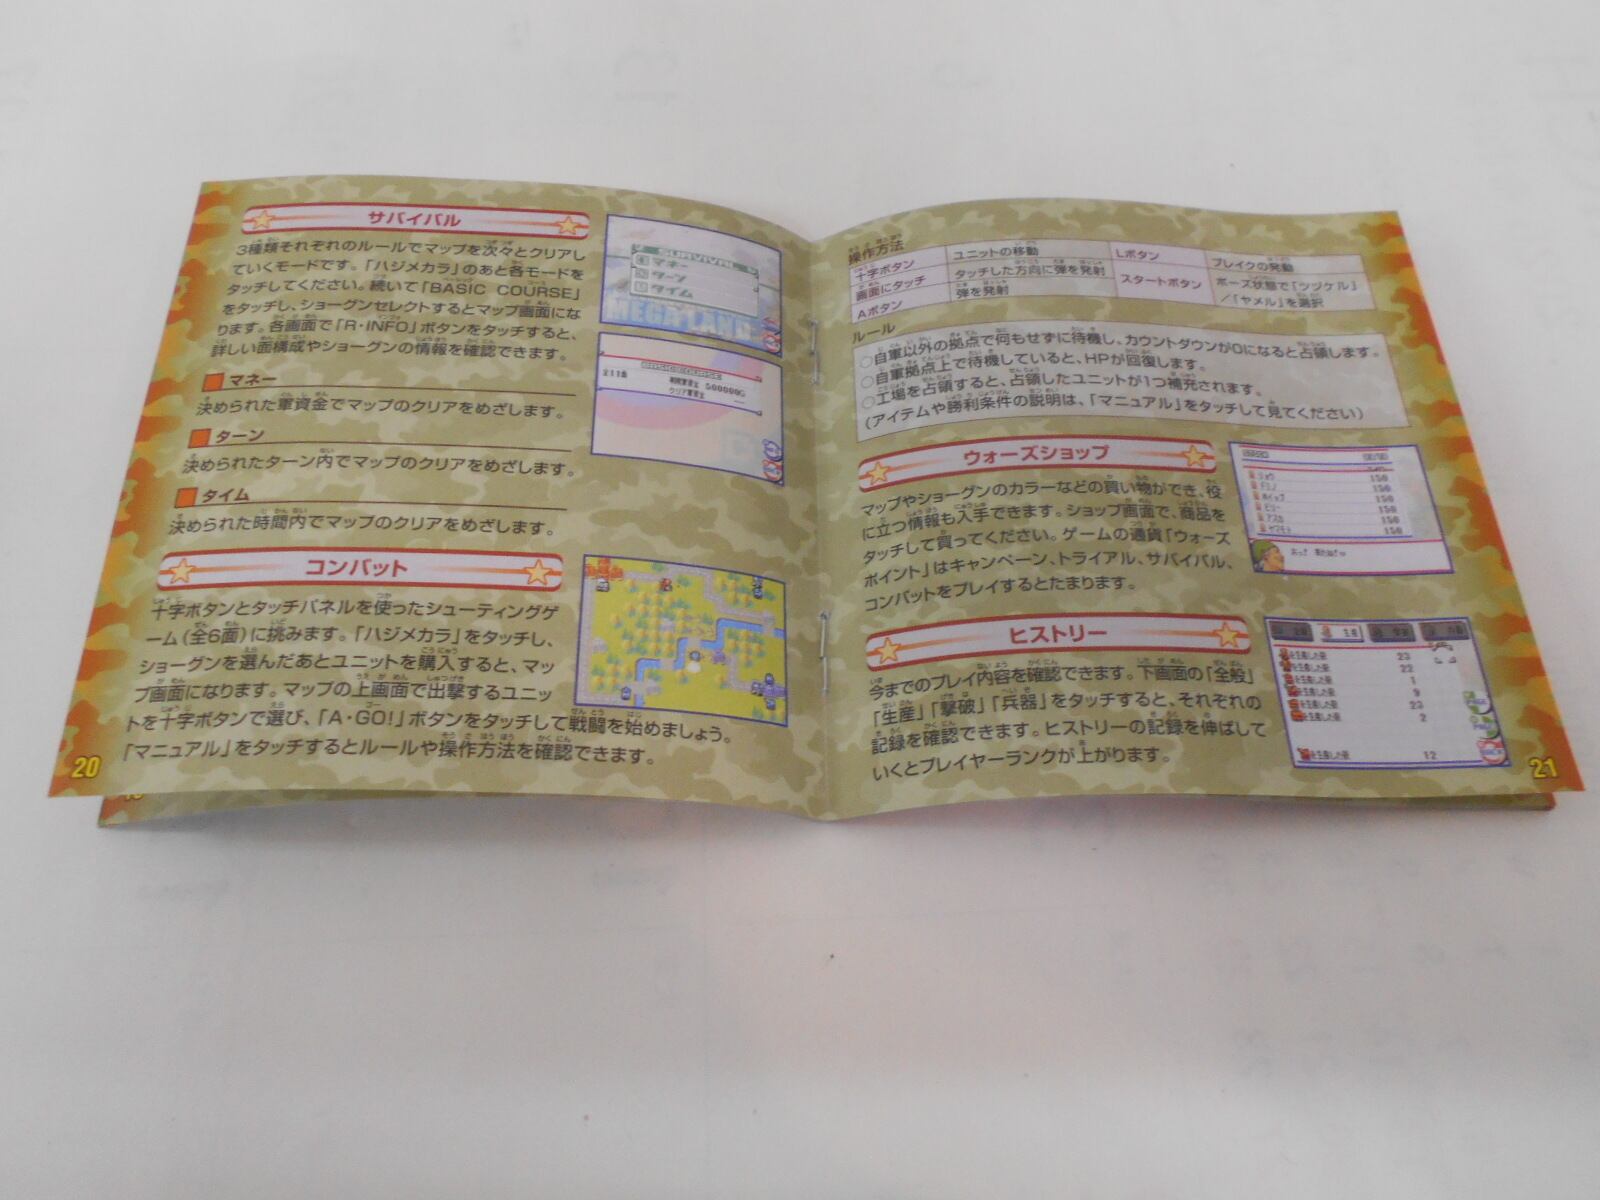 サバイバル
3種類それぞれのルールでマップを次々とクリアし
ていくモードです。「ハジメカラ」のあと各モードを
タッチしてください。続いて「BASIC COURSE」
をタッチし、ショーグンセレクトするとマップ画面にな
ります。各画面で「R・INFO」ボタンをタッチすると、
詳しい面構成やショーグンの情報を確認できます。
マネー
決められた軍資金でマップのクリアをめざします。
ターン
決められたターン内でマップのクリアをめざします。
タイム
決められた時間内でマップのクリアをめざします。
SURVIVAL
マネー
ターン
タイム
MEGA LAND
BASIC COURSE
500000G
コンバット
十字ボタンとタッチパネルを使ったシューティングゲ
ーム(全6面)に挑みます。「ハジメカラ」をタッチし、
ショーグンを選んだあとユニットを購入すると、マッ
プ画面になります。マップの上画面で出撃するユニッ
トを十字ボタンで選び、「A・GO!」ボタンをタッチして戦闘を始めましょう。
「マニュアル」をタッチするとルールや操作方法を確認できます。
20
操作方法
十字ボタン ユニットの移動 Lボタン ブレイクの発動
画面にタッチ タッチした方向に弾を発射 スタートボタン ポーズ状態で「ツヅケル」
Aボタン 弾を発射 /「ヤメル」を選択
ルール
○自軍以外の拠点で何もせずに待機し、カウントダウンが0になると占領します。
○自軍拠点上で待機していると、HPが回復します。
○工場を占領すると、占領したユニットが1つ補充されます。
(アイテムや勝利条件の説明は、「マニュアル」をタッチして見てください)
ウォーズショップ
マップやショーグンのカラーなどの買い物ができ、役
に立つ情報も入手できます。ショップ画面で、商品を
タッチして買ってください。ゲームの通貨「ウォーズ
ポイント」はキャンペーン、トライアル、サバイバル、
コンバットをプレイするとたまります。
リョウ 150
ドミノ 150
ホイップ 150
ビリー 150
アスカ 150
ヤマモト 150
ヒストリー
今までのプレイ内容を確認できます。下画面の「全般」
「生産」「撃破」「兵器」をタッチすると、それぞれの
記録を確認できます。ヒストリーの記録を伸ばして
いくとプレイヤーランクが上がります。
を生産した数 23
を生産した数 22
を生産した数 1
を生産した数 9
を生産した数 23
を生産した数 2
を生産した数 12
21